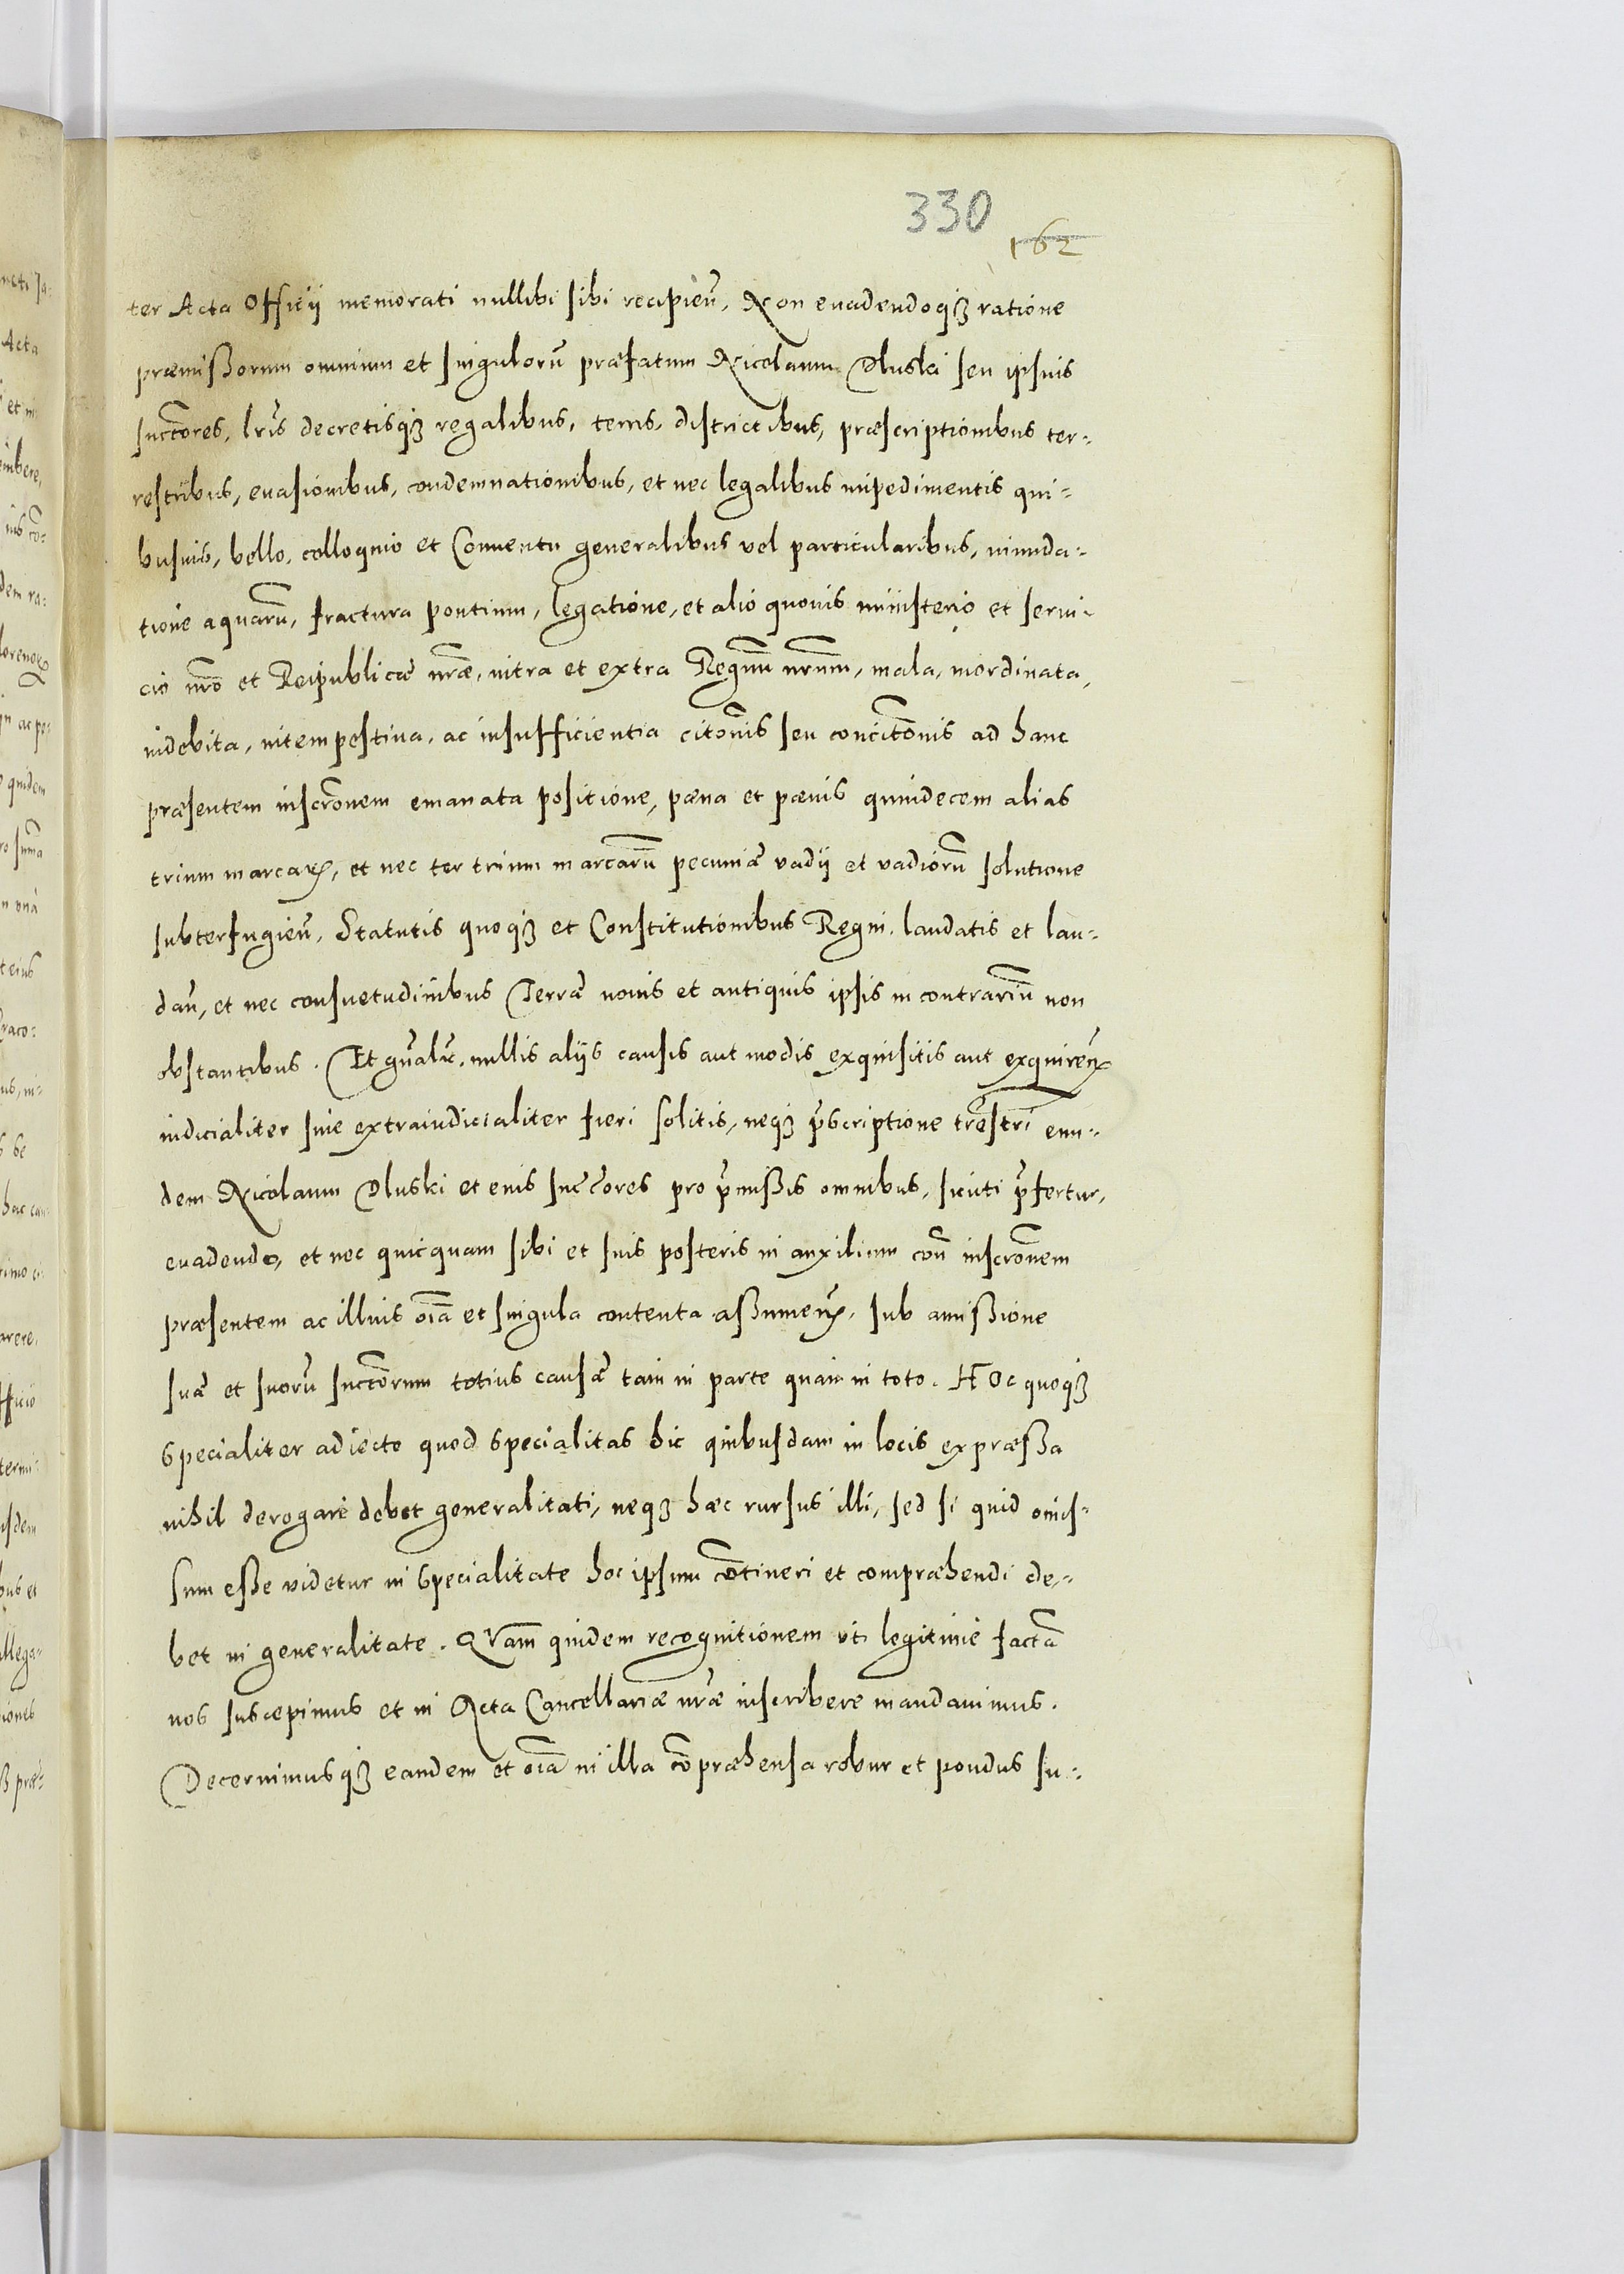 330
162
ter Acta Officii memorati nullibi sibi recipien̄, Non evadendoq₃ ratione
præmißorum omnium et singulorū præfatum Nicolaum Dluski seu ipsius
succ̄ores, lr̄is decretisq₃ regalibus, terris, districtibus, præscriptionibus ter-
restribus, evasionibus, condemnationibus, et nec legalibus impedimentis qui-
busuis, bello, colloquio et Conuentu generalibus vel particularibus, inunda-
tione aquarū, fractura pontium, legatione, et alio quouis ministerio et serui-
cio nr̄o et Reipublicæ nr̄æ, intra et extra Regnū nr̄um, mala, inordinata,
indebita, intempestiua, ac insufficientia citōnis seu concitōnis ad hanc
præsentem inscrōnem emanata positione, pæna et pænis quindecem alias
trium marcaꝝ, et nec ter trium marcarū pecuniæ vadii et vadiorū solutione
subterfugien̄, Statutis quoq₃ et Constitutionibus Regni, laudatis et lau-
dan̄, et nec consuetudinibus Terræ nouis et antiquis ipsis in contrariū non
obstantibus. Et gn̄alr̄, nullis aliis causis aut modis exquisitis aut exquiren̄
iudicialiter siue extraiudicialiter fieri solitis, neq₃ p̄scriptione tr̄estri eun-
dem Nicolaum Dluski et eius succ̄ores pro p̄mißis omnibus, sicuti p̄fertur,
euadendo, et nec quicquam sibi et suis posteris in auxilium con̄ inscrōnem
præsentem ac illius oīa et singula contenta aßumen̄, sub amißione
suæ et suorū succ̄orum totius causæ tam in parte quam in toto. HOc quoq₃
specialiter adiecto quod specialitas hic quibusdam in locis expræßa
nihil derogare debet generalitati, neq₃ hæc rursus illi, sed si quid omis-
sum eße videtur in specialitate hoc ipsum cōtineri et compræhendi de-
bet in generalitate. QVam quidem recognitionem vti legitime factā
nos suscepimus et in Acta Cancellariæ nr̄æ inscribere mandauimus.
Decernimusq₃ eandem et oīa in illa cōpræhensa robur et pondus su-